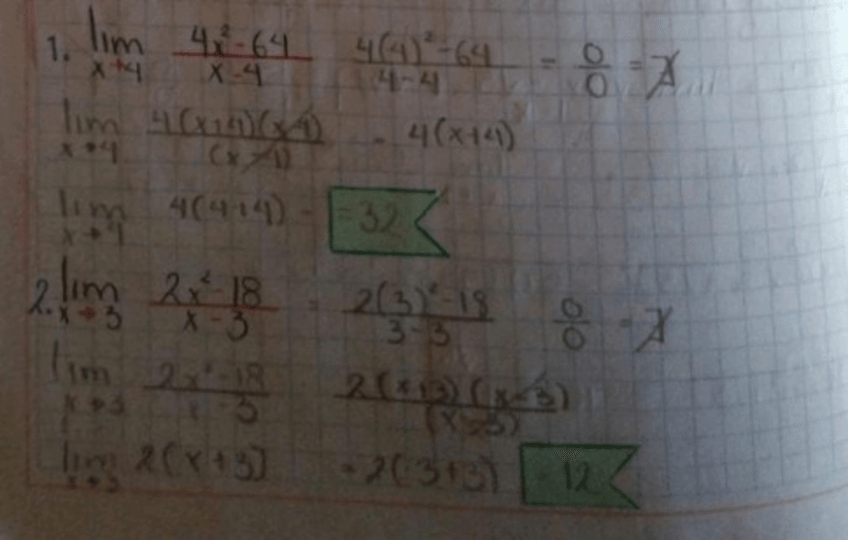 1. lim x→4 4x²-64 / x-4 4(4)²-64 / 4-4 = 0/0 = ∄
lim x→4 4(x+4)(x-4) / (x-4) - 4(x+4)
lim x→4 4(4+4) - =32
2. lim x→3 2x²-18 / x-3 = 2(3)²-18 / 3-3 0/0 = ∄
lim x→3 2x²-18 / x-3 2(x+3)(x-3) / (x-3)
lim x→3 2(x+3) = 2(3+3) 12